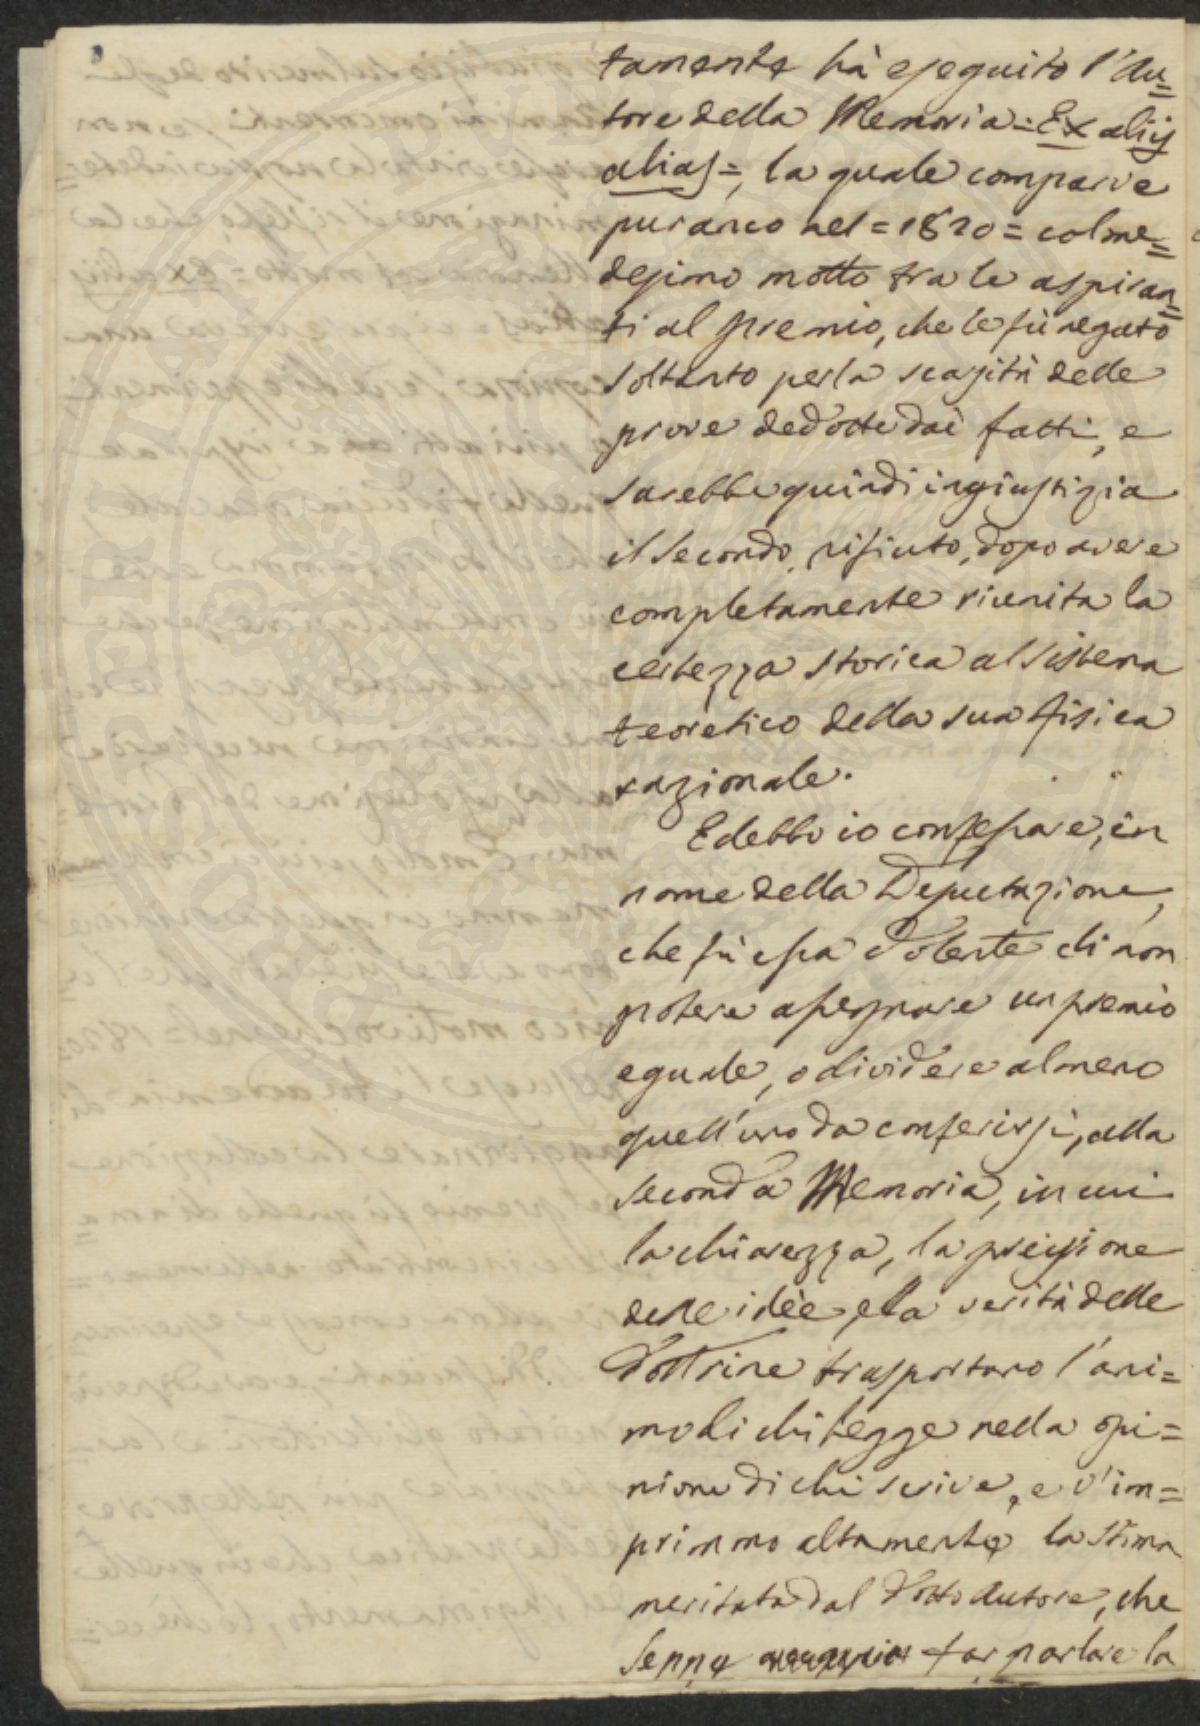 tamente hà eseguito l'Au=
tore della Memoria = Ex aliis
alias =, la quale comparve
puranco nel = 1820 = col me=
desimo motto tra le aspiran=
ti al premio, che le fù negato
soltanto per la scarsità delle
prove dedotte dai fatti, e
sarebbe quindi ingiustizia
il secondo rifiuto, dopo avere
completamente riunita la
certezza storica al sistema
teoretico della sua fisica
razionale.
E debbo io confessare, in
nome della Deputazione,
che fù essa dolente di non
potere assegnare un premio
eguale, o dividere almeno
quell'uno da conferirsi, alla
seconda Memoria, in cui
la chiarezza, la precisione
delle idèe, e la verità delle
dottrine trasportano l'ani=
mo di chi legge nella opi=
nione di chi scrive, e v'im=
primono altamente la stima
meritata dal dotto autore, che
seppe far parlare la